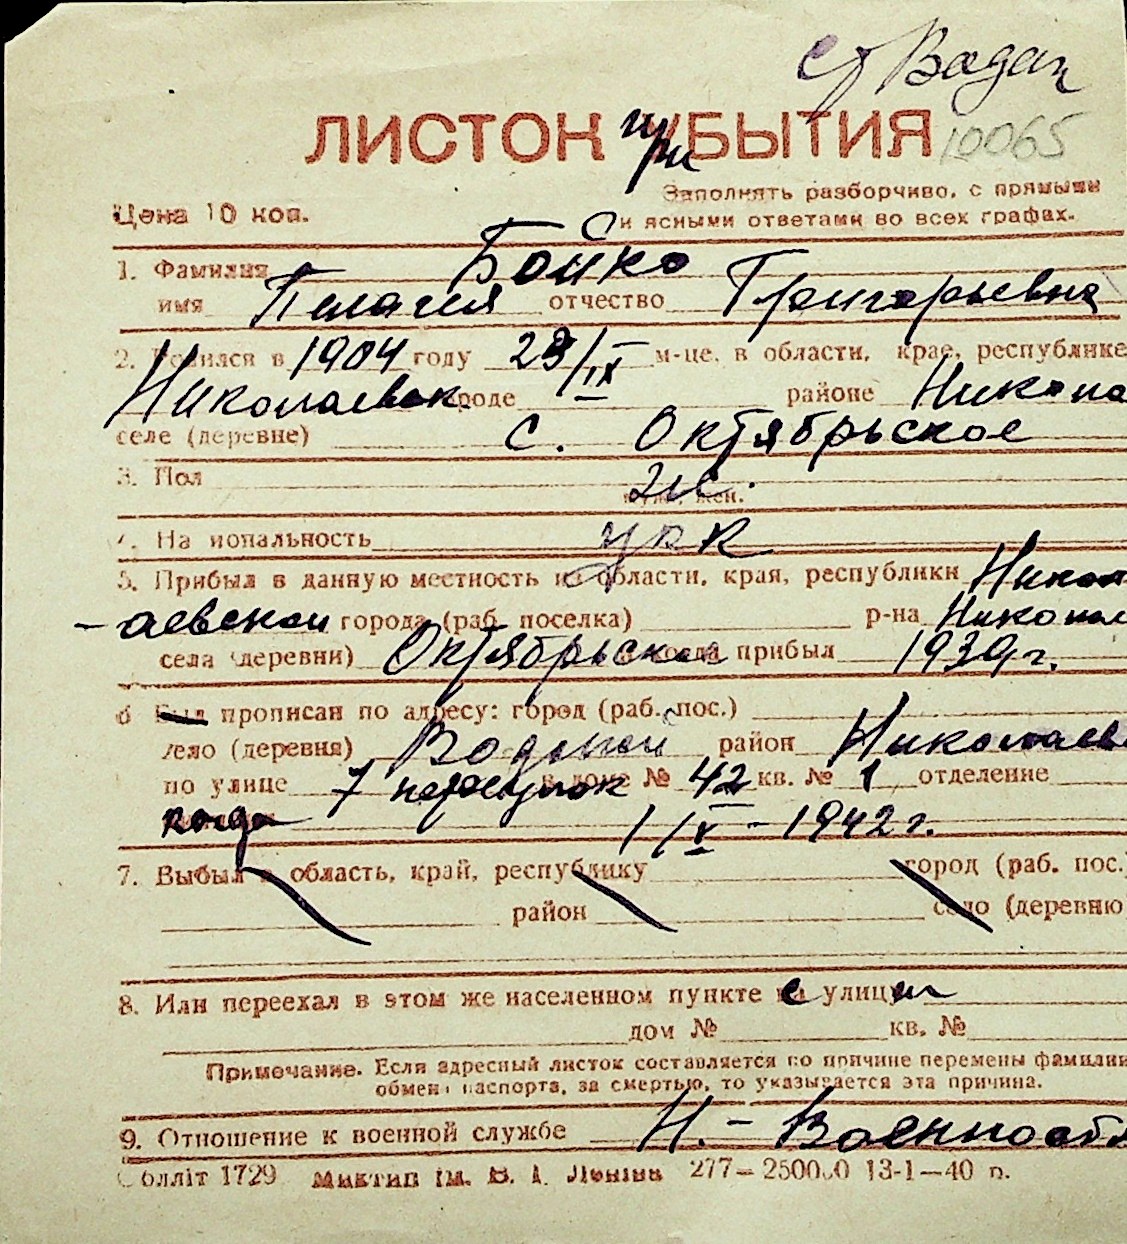 ст Водоп
ЛИСТОК при УБЫТИЯ 10065
Заполнять разборчиво, с прямыми
Цена 10 коп. и ясными ответами во всех графах.
1. Фамилия Бойко
имя Пелагея отчество Григорьевна
2. Родился в 1904 году 23/IX м-це, в области, крае, республике
Николаевск. городе районе Никола
селе (деревне) с. Октябрьское
3. Пол ж. муж., жен.
4. Национальность укр
5. Прибыл в данную местность из области, края, республики Никол
-аевской города (раб. поселка) р-на Никола
села (деревни) Октябрьское прибыл 1939 г.
6 Был прописан по адресу: город (раб. пос.)
село (деревня) район Николаев
по улице 7 переулок в доме № 42 кв. № 1 отделение
когда 1/X - 1942 г.
7. Выбыл в область, край, республику город (раб. пос.)
район село (деревню
8. Или переехал в этом же населенном пункте с улицы
дом № кв. №
Примечание. Если адресный листок составляется по причине перемены фамилии
обмена паспорта, за смертью, то указывается эта причина.
9. Отношение к военной службе Н.-Военнообя
Облліт 1729 Миктип ім. В. І. Леніна 277—250000 13-1—40 р.